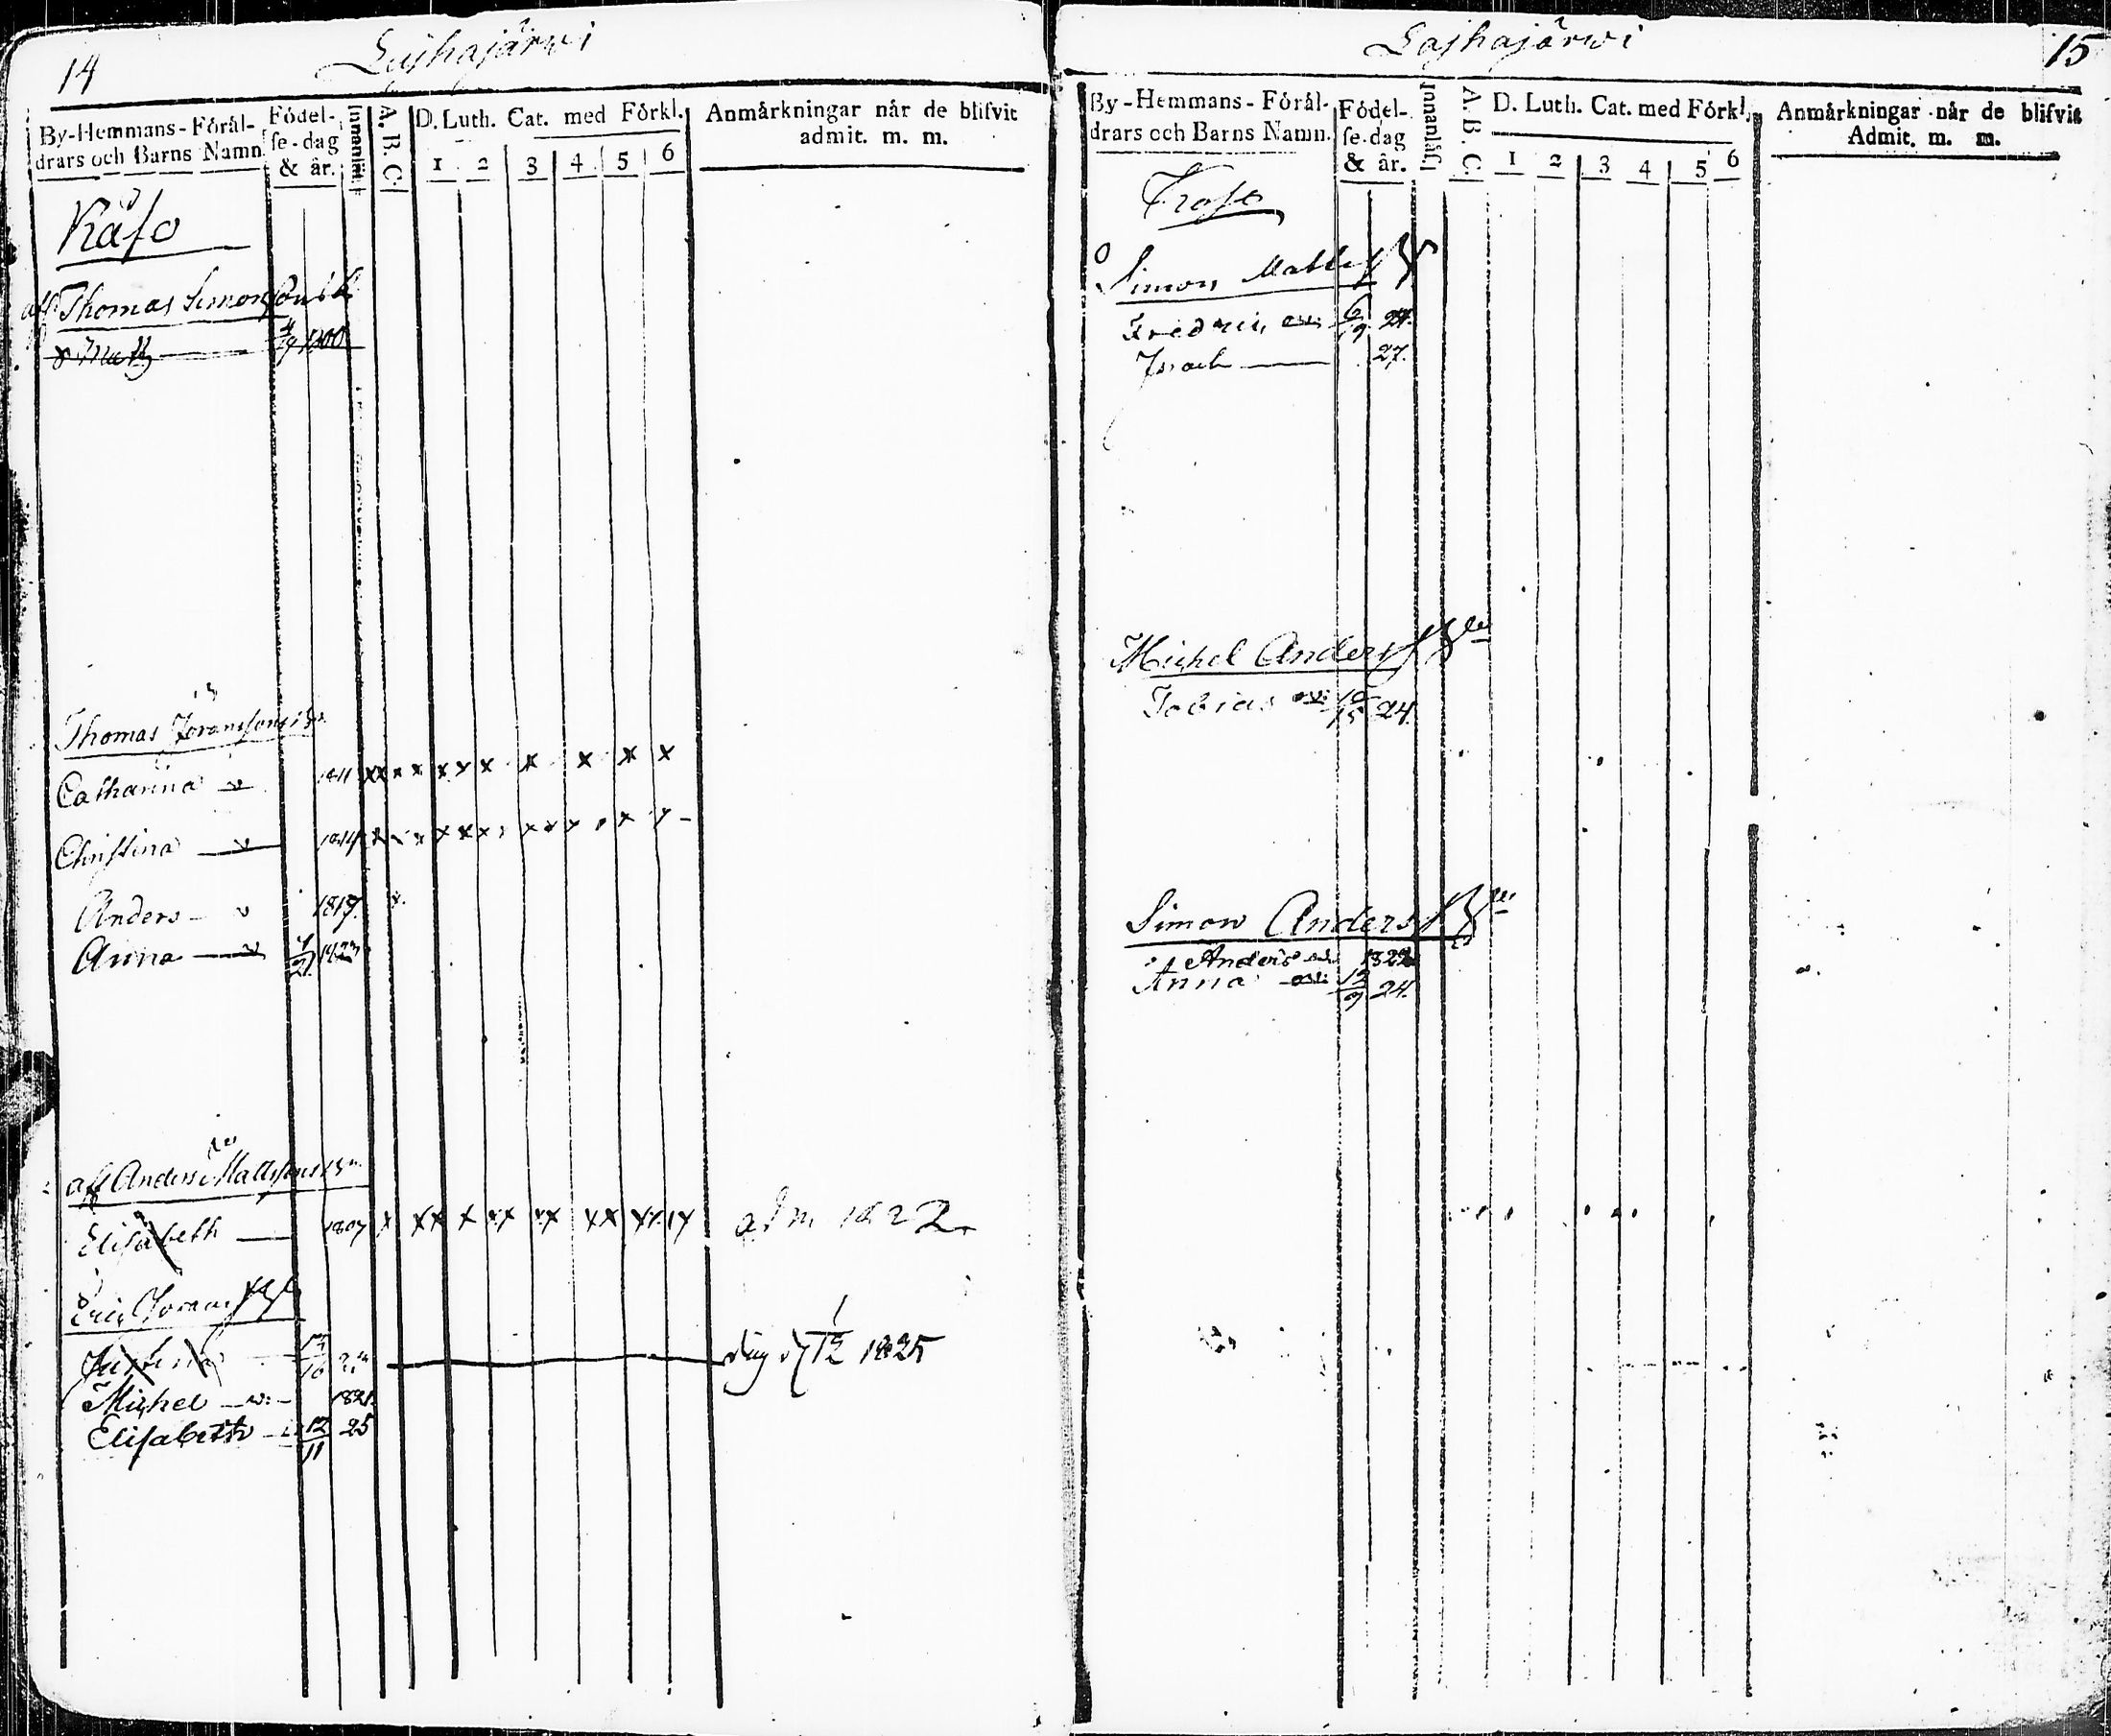 14
Lajhajärwi
By-Hemmans-Föräl-
drars och Barns Namn
Födel-
se-dag
& år.
Innanläs.
A. B. C.
D. Luth. Cat. med Förkl.
1 2 3 4 5 6
Anmärkningar når de blifvit
admit. m. m.
Käso
aff Thomas Simons
Thomas Göransons
Catharina 1811 x x x x x x x x x x x
Christina 1814 x x x x x x x x x
Anders 1819
Anna 1823
aff Anders Mattsons
Elisabeth 1807 x xx x xx xx xx xx x adm 1822
Eric Görans
Justina 1/12 1825
Michel 1821
Elisabeth 12/11 25
15
Lajhajärwi
By-Hemmans-Föräl-
drars och Barns Namn.
Födel-
se-dag
& år.
Innanläs.
A. B. C.
D. Luth. Cat. med Förkl.
1 2 3 4 5 6
Anmärkningar når de blifvit
Admit. m. m.
Simon Matts
Fredric 6/19 24.
Isach 27.
Michel Anders
Tobias 24
Simon Anders
Anders 1822
Anna 12/9 24.